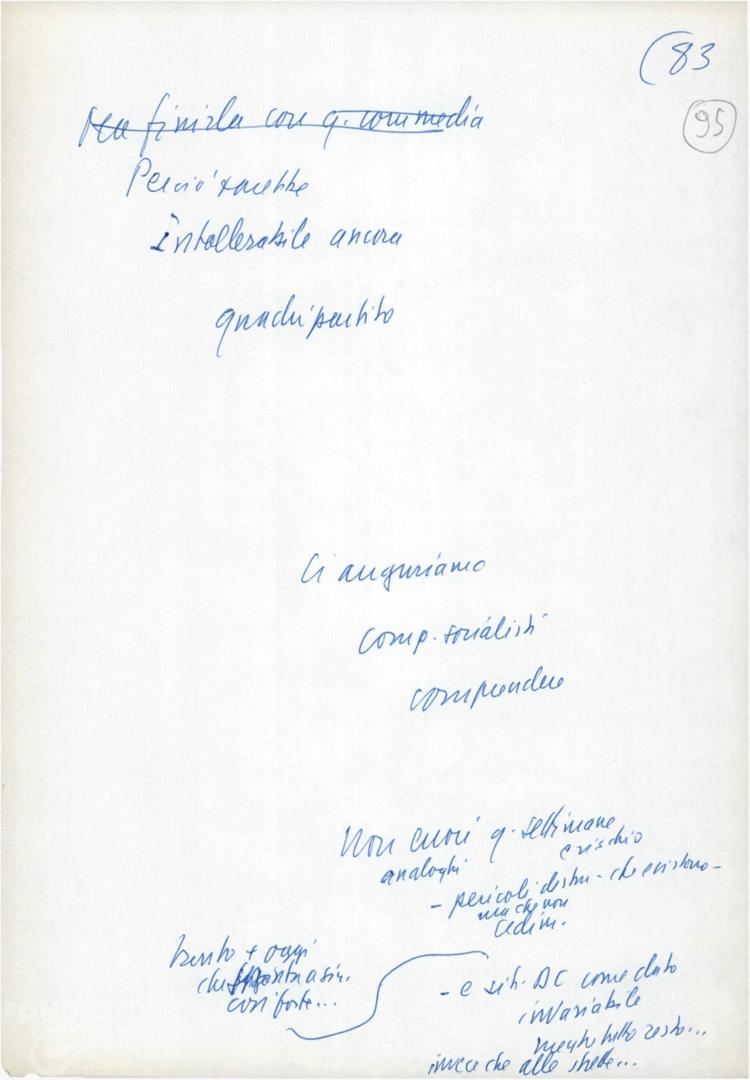 (83
95
finirla con q. commedia
Perciò sarebbe
intollerabile ancora
quadripartito
Ci auguriamo
comp. socialisti
comprendere
Non errori q. settimane
e rischio
analoghi
- pericoli destra - che esistono -
ma che non
cedim.
tanto + oggi
che spinta a sin.
così forte...
- e sit. DC come dato
invariabile
mentre tutto resto...
invece che alle strette...